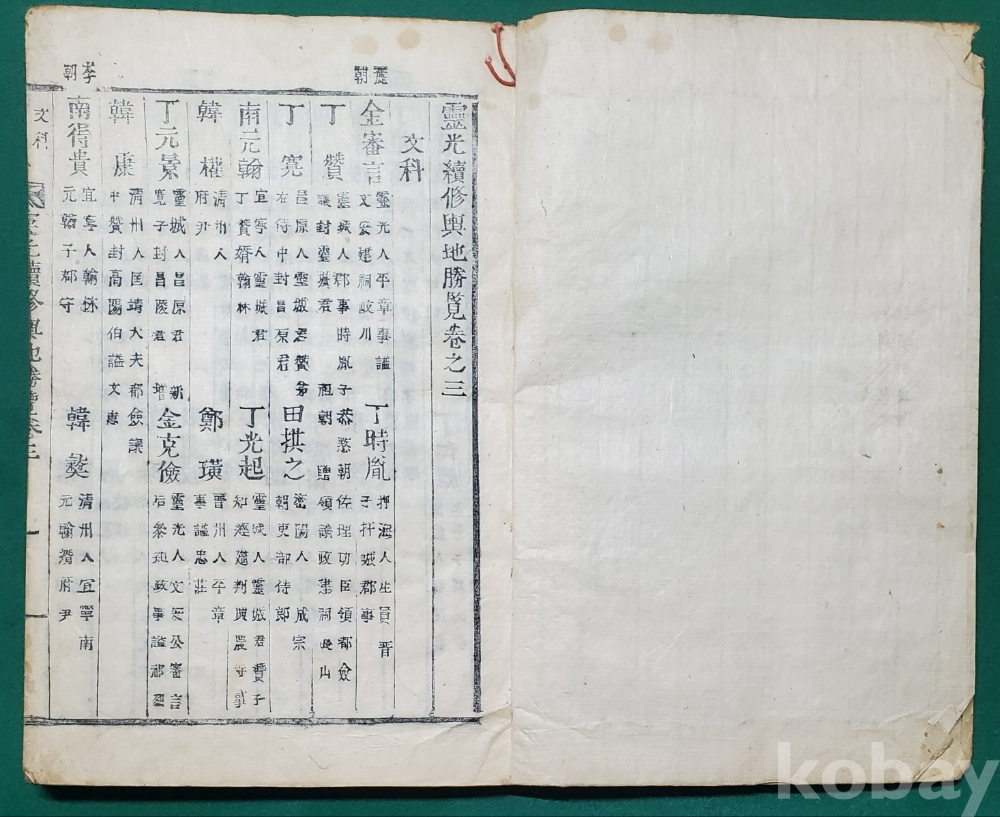 麗朝
李朝
靈光續修輿地勝覽卷之三
文科
金審言 靈光人平章事謚
文安建祠岐川
丁時胤 押海人生員晋
子扞城郡事
丁贊 靈城人郡事時胤子恭愍朝佐理功臣領都僉
議封靈城君 祖朝贈領議政建祠長山
丁寬 昌原人靈城君贊弟
右侍中封昌原君
田拱之 密陽人 成宗
朝吏部侍郎
南元翰 宜寧人靈城君
丁贊婿翰林
丁光起 靈城人靈城君贊子
知經筵判典農寺事
韓權 清州人
府尹
鄭璜 晋州人平章
事謚忠莊
丁元景 靈城人昌原君
寬子封昌陵君
新增
金克儉 靈光人文安公審言
后參知政事謚
韓康 清州人匡靖大夫都僉議
中贊封高陽伯謚文惠
南得貴 宜寧人翰林
元翰子郡守
韓 清州人宜寧南
元翰婿府尹
文科
續修輿地勝覽卷三
一